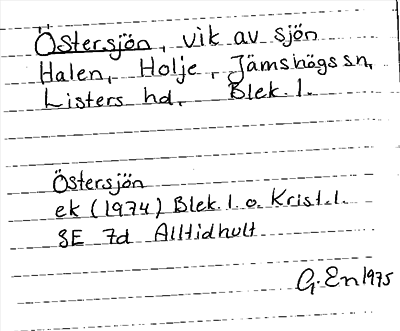 Östersjön, vik av sjön
Halen, Holje, Jämshögs sn,
Listers hd, Blek. l.
Östersjön
ek (1974) Blek. l o. Krist. l.
3E 7d Alltidhult
G. En 1975